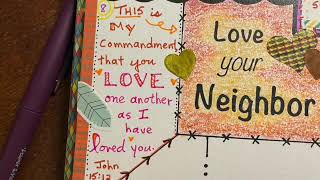 8
THIS is
My
Commandment
that you
LOVE
one another
as I
have
loved you.
John
15:12
Love
your
Neighbor
5